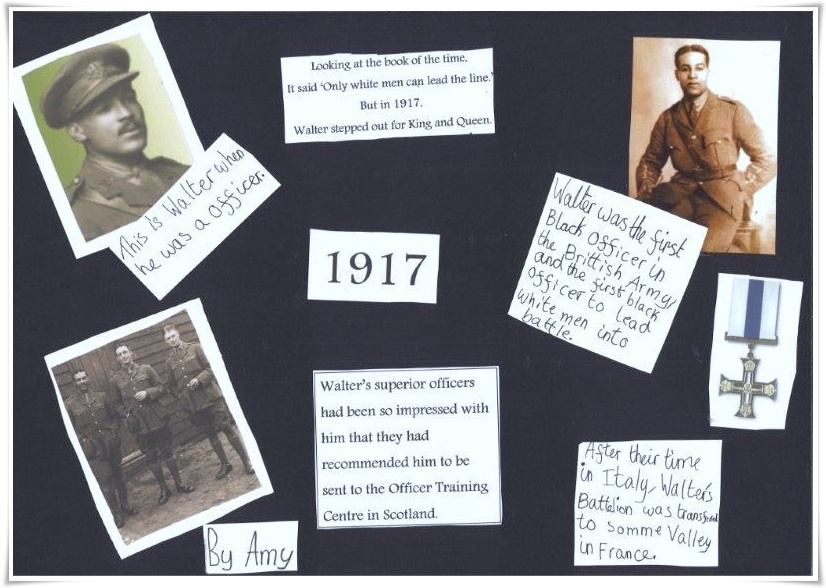 Looking at the book of the time,
It said 'Only white men can lead the line.'
But in 1917,
Walter stepped out for King and Queen.
This is Walter when
he was a officer.
Walter was the first
Black Officer in
the Brittish Army,
and the first black
officer to lead
white men into
battle.
1917
Walter's superior officers
had been so impressed with
him that they had
recommended him to be
sent to the Officer Training
Centre in Scotland.
After their time
in Italy, Walter's
Battalion was transfred
to Somme Valley
in France.
By Amy